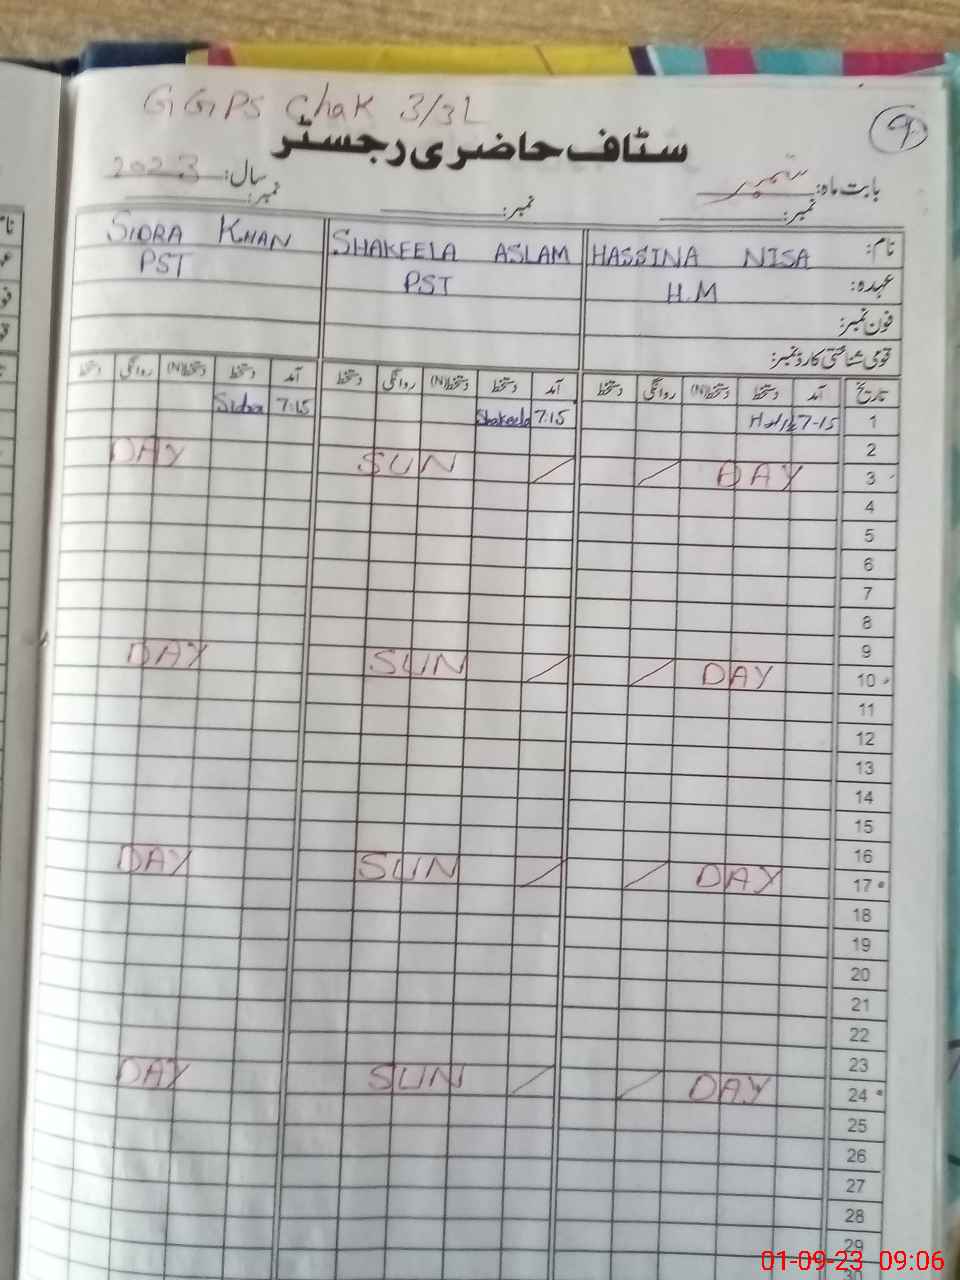 GGPS Chak 3/3L
9
سٹاف حاضری رجسٹر
بابت ماہ: ستمبر سال: 2023
نمبر: نمبر: نمبر:
نام: HASSINA NISA SHAKEELA ASLAM SIDRA KHAN
عہدہ: H.M PST PST
فون نمبر:
قومی شناختی کارڈ نمبر:
تاریخ آمد دستخط دستخط(N) روانگی دستخط آمد دستخط دستخط(N) روانگی دستخط آمد دستخط دستخط(N) روانگی دستخط
1 7-15 7:15 Shakeela 7:15 Sidra
2
3 DAY / / SUN DAY
4
5
6
7
8
9
10 DAY / / SUN DAY
11
12
13
14
15
16
17 DAY / / SUN DAY
18
19
20
21
22
23
24 DAY / / SUN DAY
25
26
27
28
29
30
01-09-23 09:06